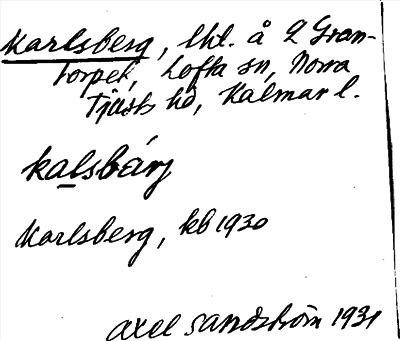 Karlsberg, lht. å 2 Gran-
torpet, Lofta sn, Norra
Tjusts hd, Kalmar l.
kalsbärj
Karlsberg, kb 1930
Axel Sandström 1931